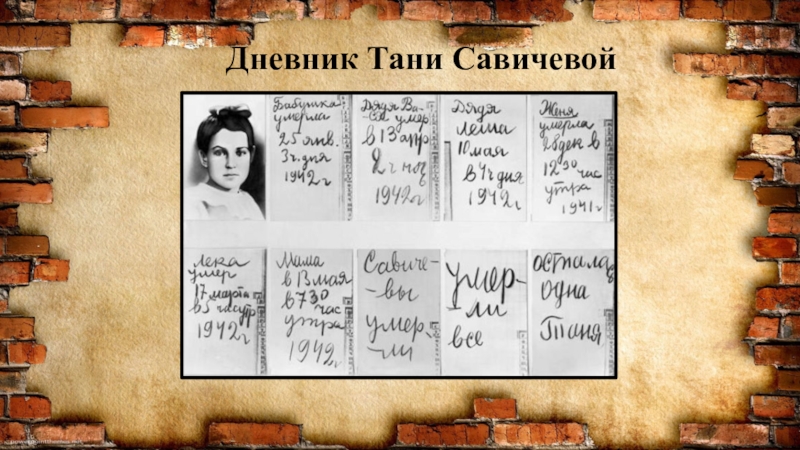 Дневник Тани Савичевой
Бабушка
умерла
25 янв.
3ч.дня
1942г
Дядя Ва-
-ся умер
в 13 апр
2 ч ночь
1942г
Дядя
Леша
10 мая
в 4ч дня
1942г
Женя
умерла
28 дек в
12 30 час
утра
1941г
Лека
умер
17 марта
в 5 часутр
1942г
Мама
в 13 мая
в 7 30 час
утра
1942г
Савиче-
-вы
умер
-ли
умер-
-ли
все
осталась
одна
Таня